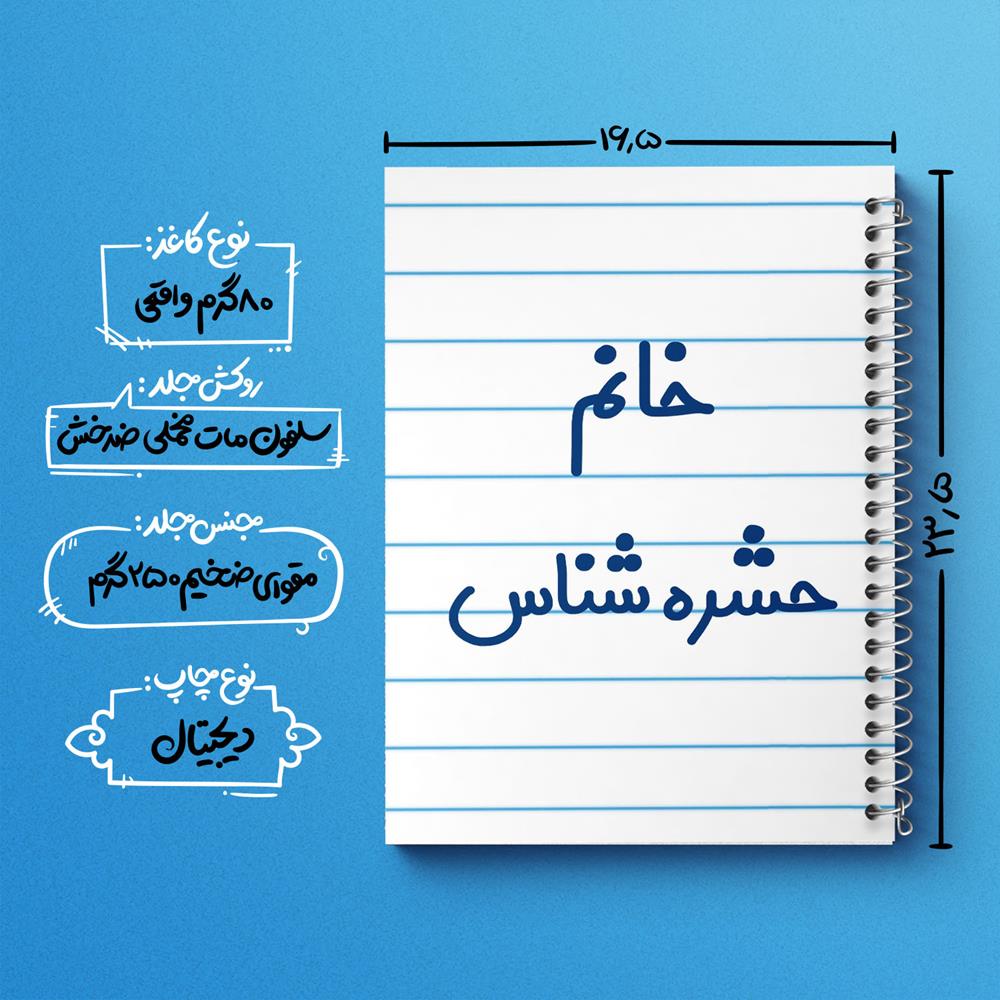 ۱۶٫۵
۲۳٫۵
خانم
حشره شناس
نوع کاغذ:
۸۰گرم واقعی
روکش جلد:
سلفون مات مخملی ضدخش
جنس جلد:
مقوای ضخیم ۲۵۰ گرم
نوع چاپ:
دیجیتال